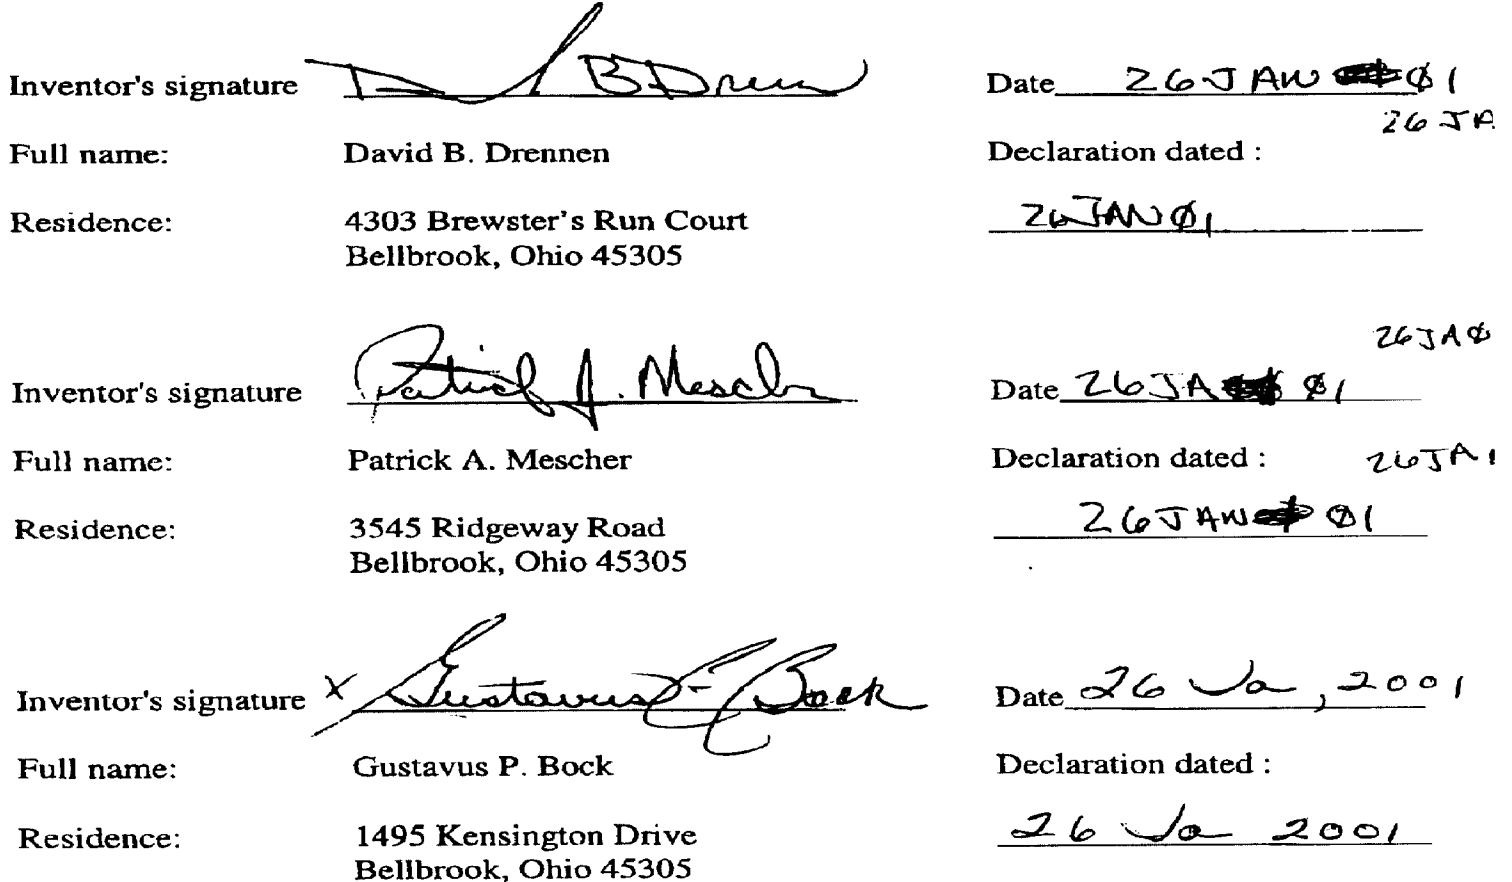 Inventor's signature David B Drennen Date 26 JAN 01
26 JA
Full name: David B. Drennen Declaration dated :
Residence: 4303 Brewster's Run Court 26 JAN 01
Bellbrook, Ohio 45305
26 JA 0
Inventor's signature Patrick A. Mescher Date 26 JA 01
Full name: Patrick A. Mescher Declaration dated : 26 JA
Residence: 3545 Ridgeway Road 26 JAN 01
Bellbrook, Ohio 45305
Inventor's signature X Gustavus P Bock Date 26 Ja, 2001
Full name: Gustavus P. Bock Declaration dated :
Residence: 1495 Kensington Drive 26 Ja 2001
Bellbrook, Ohio 45305